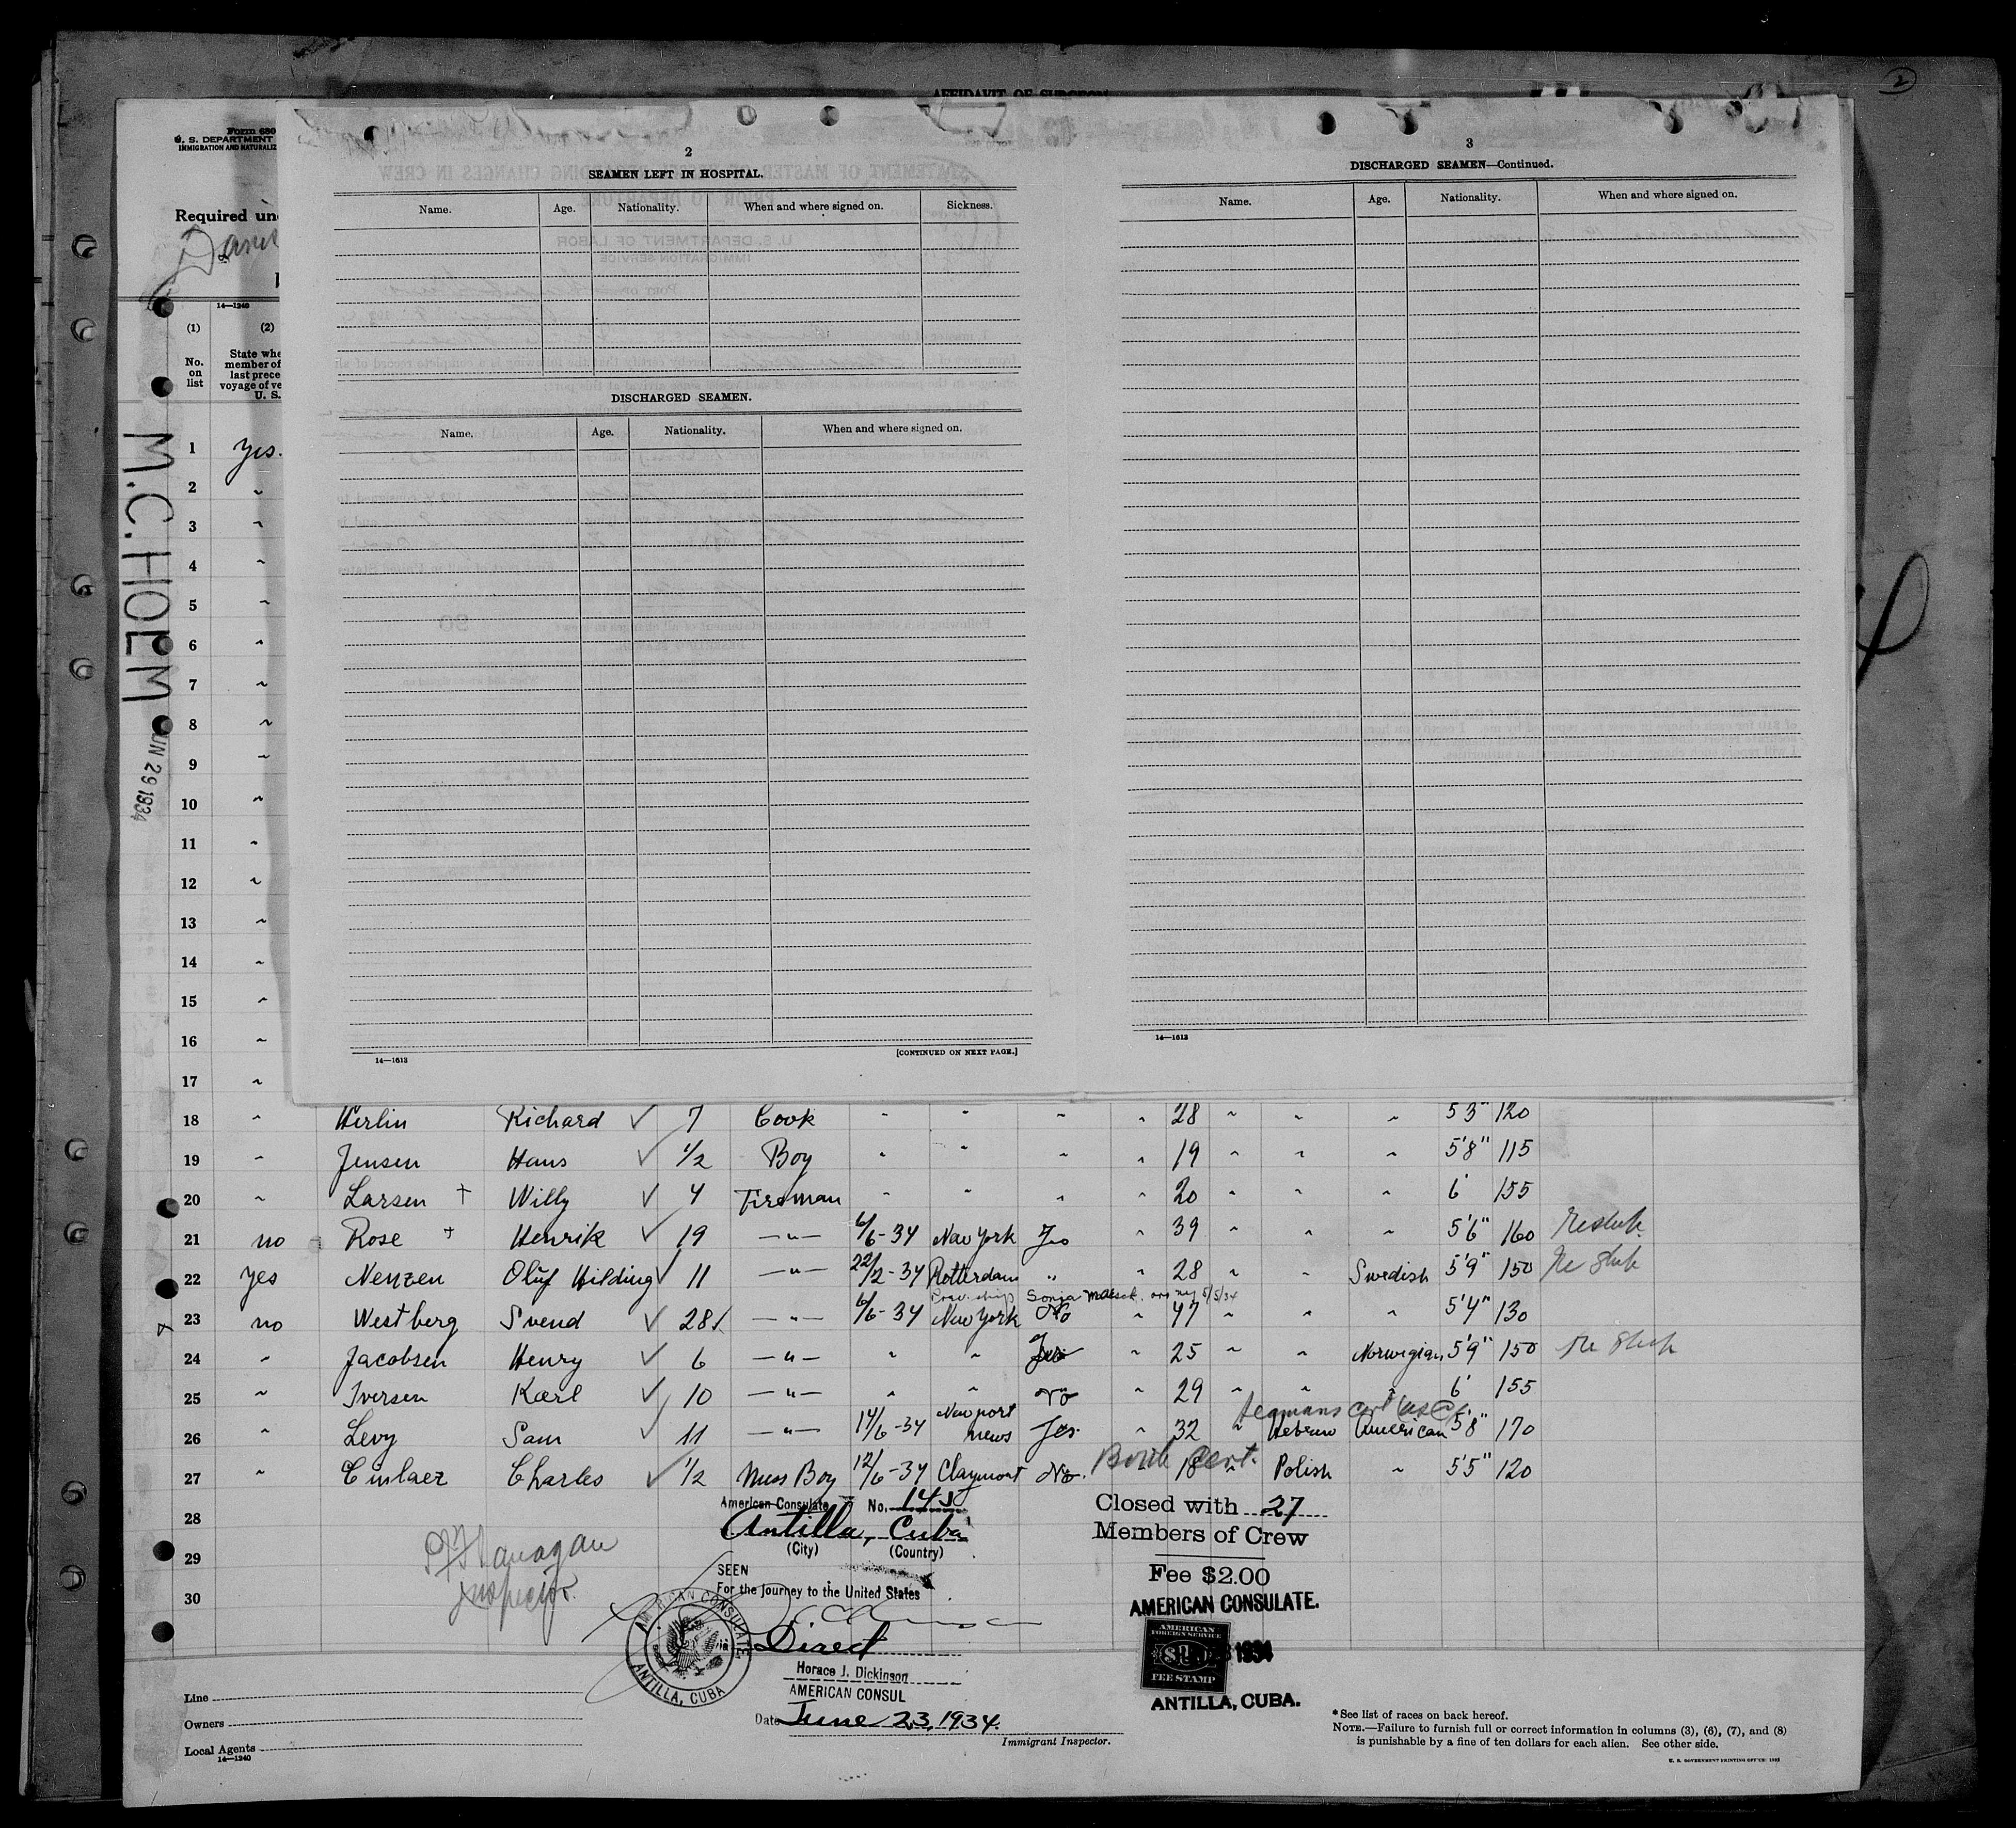 2
AFFIDAVIT OF SURGEON
Form 680
U. S. DEPARTMENT
IMMIGRATION AND NATURALIZ
Required un
14—1240
(1)
(2)
No. on list
State whe
member of
last prece
voyage of ve
U. S.
M.C. HOLM
JUN 29 1934
2
SEAMEN LEFT IN HOSPITAL.
Name. Age. Nationality. When and where signed on. Sickness.
DISCHARGED SEAMEN.
Name. Age. Nationality. When and where signed on.
14—1613
[CONTINUED ON NEXT PAGE.]
3
DISCHARGED SEAMEN—Continued.
Name. Age. Nationality. When and where signed on.
14—1613
1 Yes.
2 "
3 "
4 "
5 "
6 "
7 "
8 "
9 "
10 "
11 "
12 "
13 "
14 "
15 "
16 "
17 "
18 " Herlin Richard ✓ 7 Cook " " " " 28 " " " 5'3" 120
19 " Jensen Hans ✓ 1/2 Boy " " " " 19 " " " 5'8" 115
20 " Larsen + Willy ✓ 4 Fireman " " " " 20 " " " 6' 155
21 no Rose + Henrik ✓ 19 —"— 6/6-34 New York Yes " 39 " " " 5'6" 160 Reship.
22 yes Nenzen Oluf Hilding ✓ 11 —"— 22/2-34 Rotterdam " " 28 " " Swedish 5'9" 150 Re Ship
Prev. ship Sonja Maersk arr ny 5/5/34
23 no Westberg Svend ✓ 28 —"— 6/6-34 New York No " 47 " " " 5'4" 130
24 " Jacobsen Henry ✓ 6 —"— " " Yes " 25 " " Norwegian 5'9" 150 Re Ship
25 " Iversen Karl ✓ 10 —"— " " No " 29 " " " 6' 155
Seamans cert
26 " Levy Sam ✓ 11 —"— 14/6-34 Newport News Yes. " 32 " Hebrew American 5'8" 170
Birth Cert.
27 " Charles ✓ 1/2 Mess Boy 12/6-34 Claymont No. " 18 " Polish " 5'5" 120
28
29
30
Flanagan
Inspector.
American Consulate No. 145
Antilla, Cuba
(City) (Country)
SEEN
For the journey to the United States
Direct
Horace J. Dickinson
AMERICAN CONSUL
Date June 23, 1934.
AMERICAN CONSULATE
ANTILLA, CUBA
Closed with 27
Members of Crew
Fee $2.00
AMERICAN CONSULATE.
AMERICAN
FOREIGN SERVICE
FEE STAMP
1934
ANTILLA, CUBA.
Line
Owners
Local Agents
14—1240
Immigrant Inspector.
*See list of races on back hereof.
NOTE.—Failure to furnish full or correct information in columns (3), (6), (7), and (8)
is punishable by a fine of ten dollars for each alien. See other side.
U. S. GOVERNMENT PRINTING OFFICE: